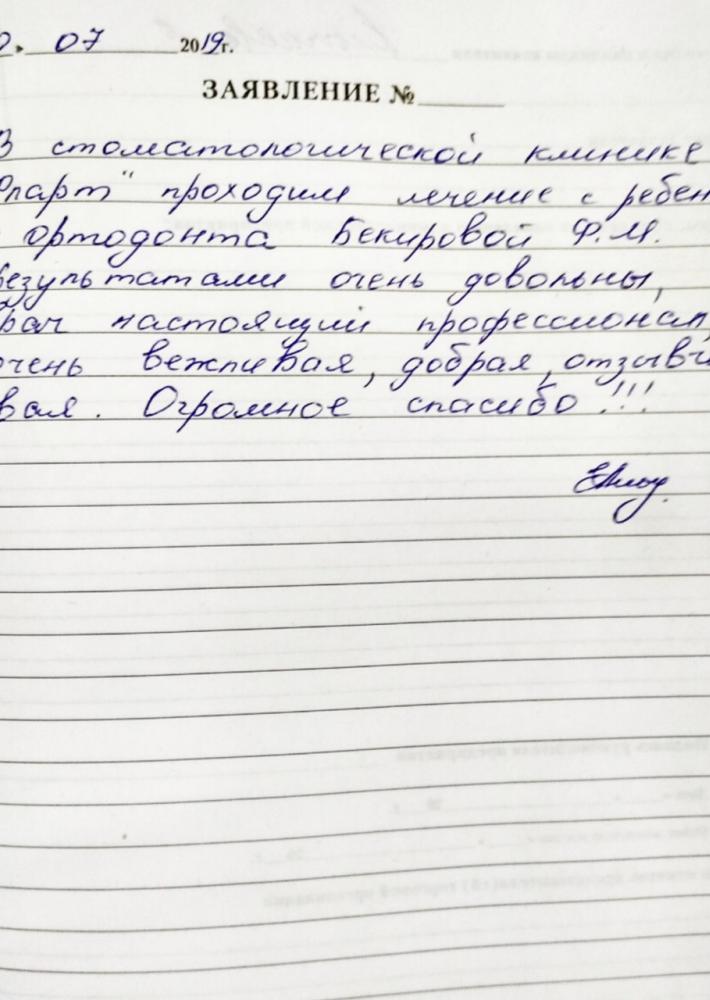 07 2019г.
ЗАЯВЛЕНИЕ №
В стоматологической клинике
проходим лечение с ребен
ортодонта Бекировой Ф.М.
результатами очень довольны,
врач настоящий профессионал,
очень вежливая, добрая, отзывчи
вая. Огромное спасибо!!!